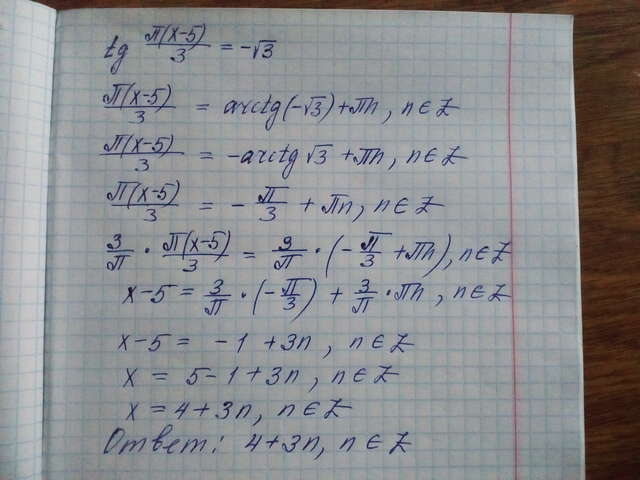 tg П(x-5)/3 = -√3
П(x-5)/3 = arctg(-√3)+Пn, n∈Z
П(x-5)/3 = -arctg√3 +Пn, n∈Z
П(x-5)/3 = -П/3 + Пn, n∈Z
3/П · П(x-5)/3 = 3/П · (-П/3 +Пn), n∈Z
x-5 = 3/П · (-П/3) + 3/П · Пn, n∈Z
x-5 = -1 +3n, n∈Z
x = 5-1+3n, n∈Z
x = 4+3n, n∈Z
Ответ: 4+3n, n∈Z